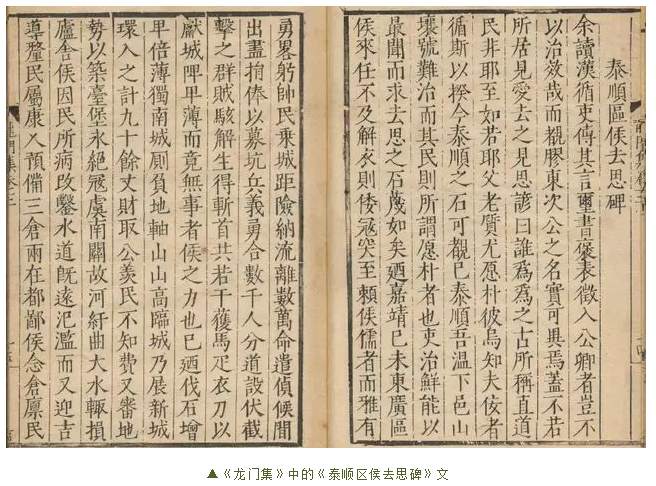 泰順區侯去思碑
余讀漢循吏傳其言璽書褒表徵入公卿者豈不
以治效哉而覩膠東次公之名實可異焉蓋不若
所居見愛去之見思諺曰誰爲爲之古所稱直道
民非耶至如若耶父老質尤愿朴彼烏知夫佞者
循斯以揆今泰順之石可觀已泰順吾溫下邑山
壤號難治而其民則所謂愿朴者也吏治鮮能以
最聞而求去思之石蔑如矣廼嘉靖己未東廣區
侯來任不及解衣則倭寇突至賴侯儒者而雅有
勇畧躬帥民乗城距險納流離數萬命遣偵候間
出盡捐俸以募坑兵義勇合數千人分道設伏截
擊之群賊駭解生得斬首共若干獲馬疋衣刀以
獻城陴甲薄而竟無事者侯之力也已廼伐石增
甲倍薄獨南城厠負地軸山山高臨城乃展新城
環入之計九十餘丈財取公羡民不知費又審地
勢以築臺堡永絕寇虞南關故河紆曲大水輒損
廬舍侯因民所病改鑿水道旣遠氾濫而又迎吉
導釐民屬康入預備三倉兩在都鄙侯念倉廩民
▲《龙门集》中的《泰顺区侯去思碑》文